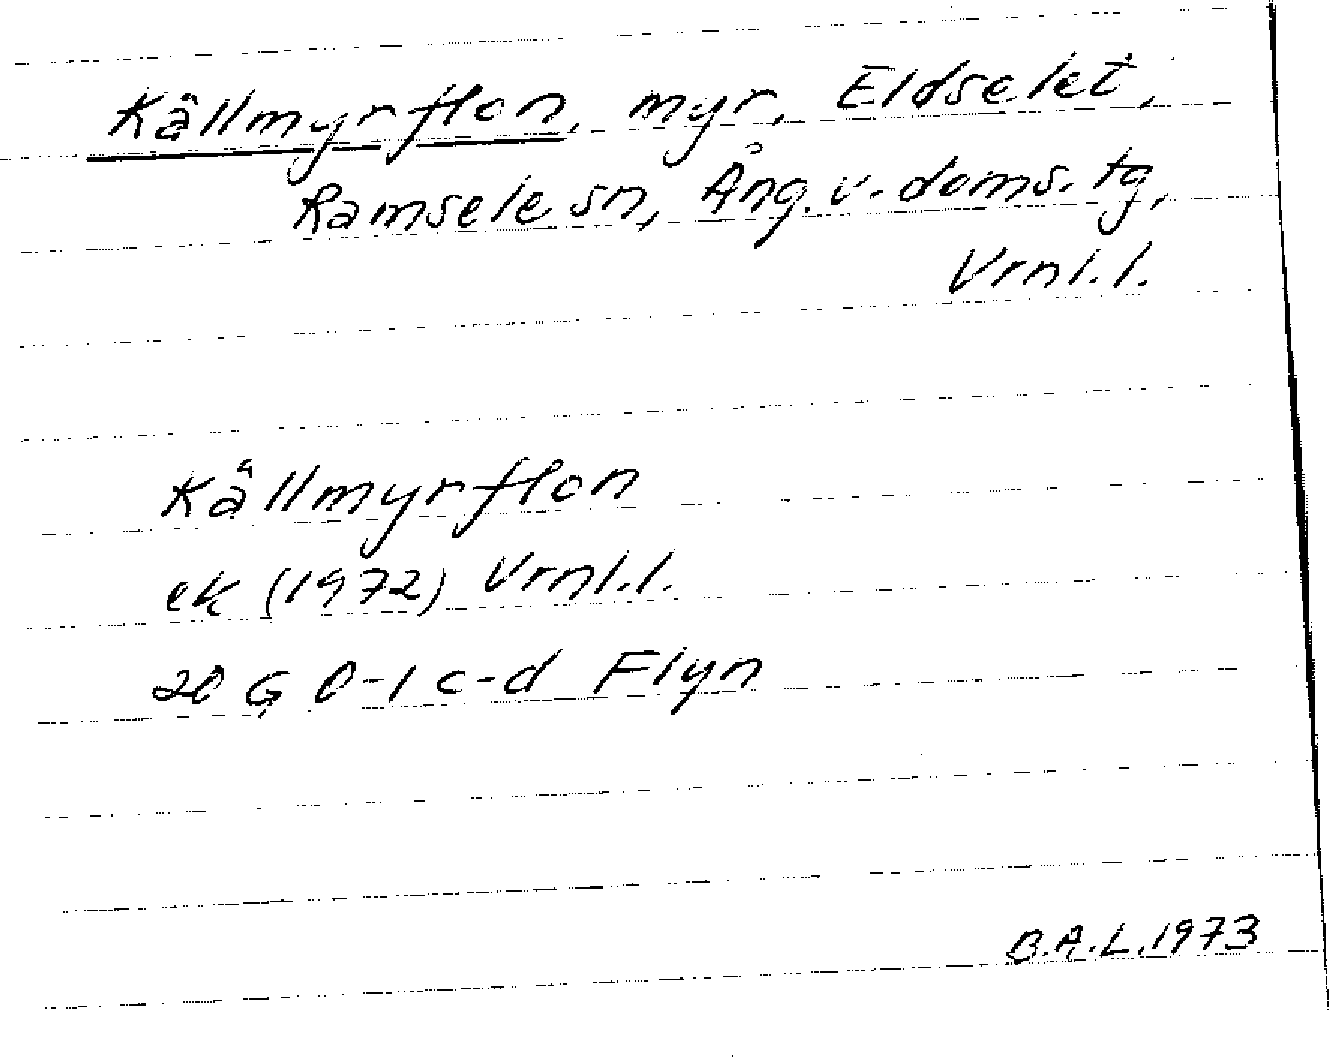 Källmyrflon, myr, Eldselet,
Ramsele sn, Ång. v. doms. tg,
Vrnl. l.
Källmyrflon
ek (1972) Vrnl. l.
20 G 0-1 c-d Flyn
B.A.L. 1973